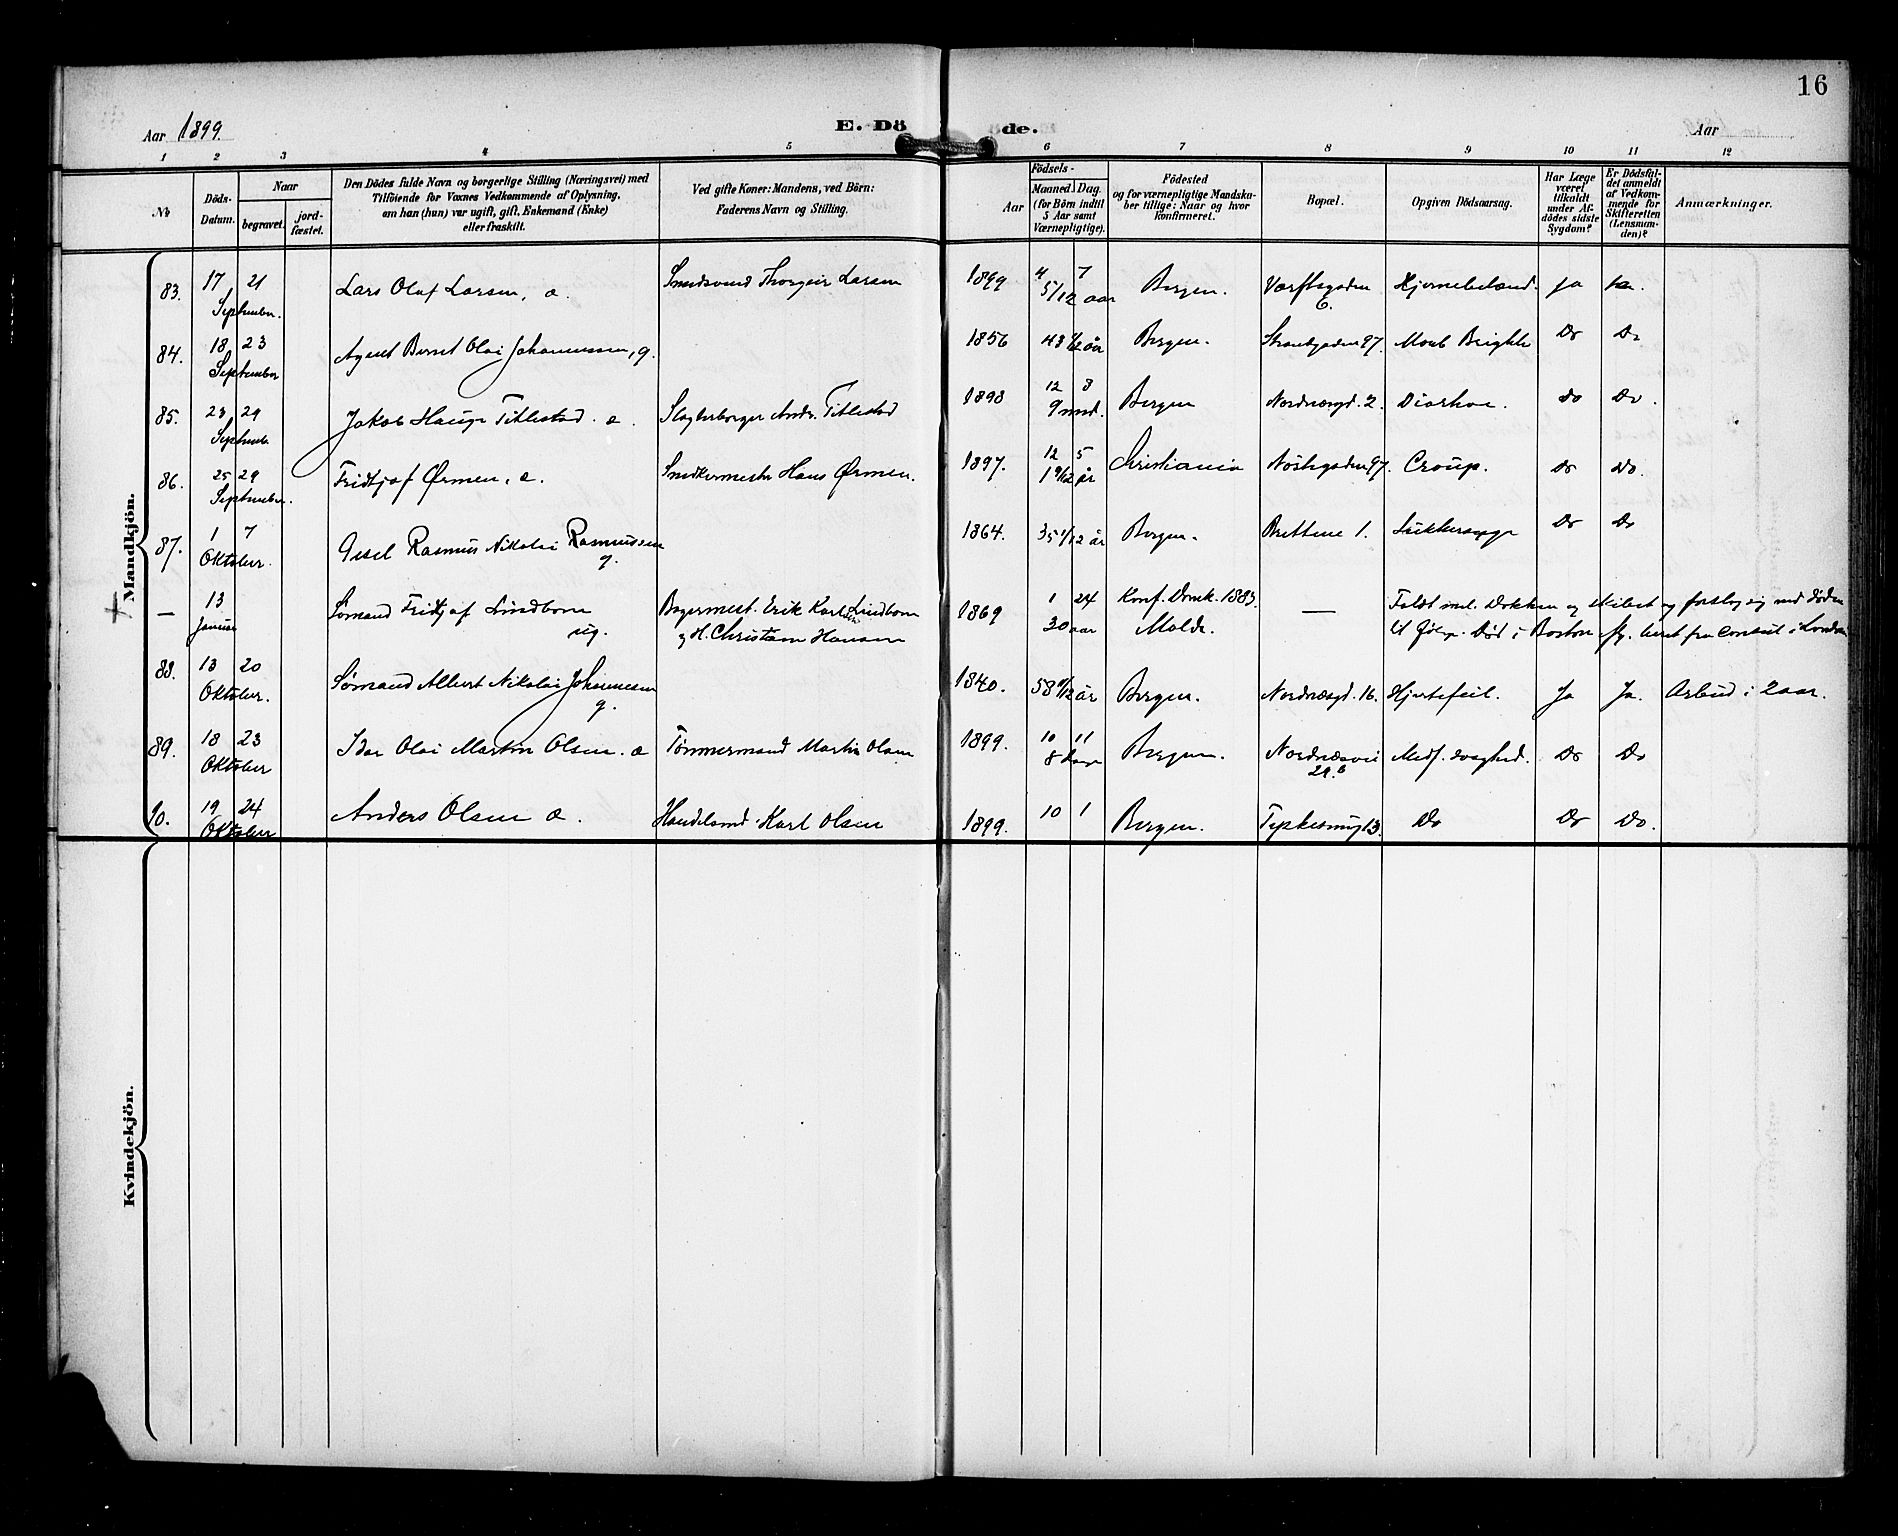 16
Aar 1899.
E. Dö
de.
Aar
1 2 3 4 5 6 7 8 9 10 11 12
No
Döds-Datum.
Naar
begravet.
jord-fæstet.
Den Dödes fulde Navn og borgerlige Stilling (Næringsvei) med
Tilföiende for Voxnes Vedkommende af Oplysning,
om han (hun) var ugift, gift, Enkemand (Enke)
eller fraskilt.
Ved gifte Koner: Mandens, ved Börn:
Faderens Navn og Stilling.
Aar
Födsels-
Maaned. Dag.
(for Börn indtil
5 Aar samt
Værnepligtige).
Födested
og for værnepligtige Mandska-
ber tillige: Naar og hvor
konfirmeret.
Bopæl.
Opgiven Dödsaarsag.
Har Læge
været
tilkaldt
under Af-
dödes sidste
Sygdom?
Er Dödsfal-
det anmeldt
af Vedkom-
mende for
Skifteretten
(Lensman-
den)?
Anmærkninger.
Mandkjön.
83. 17 21 September. Lars Olaf Larsen, e. Smedsvend Thorgeir Larsen 1899 4 7 5/12 aar Bergen. Værftsgaden 6. Hjernebetænd. ja
84. 18 23 September Agent Berent Olai Johannessen, g. 1856 43 år Bergen. Strandgaden 87. Morb Brightii Do Do
85. 23 29 Septemb. Jakob Hauge Titlestad. e. Slagterborger Andr. Titlestad 1898 12 8 9 mnd. Bergen Nordnæsgd. 2. Diarhoe. Do Do.
86. 25 29 September. Fridtjof Ørmen, e. Snedkermester Hans Ørmen. 1897. 12 5 1 9/12 år Christiania Nöstegaden 97. Croup. Do Do.
87. 1 7 Oktober. Rasmus Nikolai Rasmussen g. 1864. 35 1/12 år Bergen. 1. Sukkersyge Do Do
+ — 13 Januar Sømand Fridtjof Lindbom ug. Bagermest. Erik Karl Lindbom og H. Christiane Hansen 1869 1 24 30 aar Konf. Domk. 1883. Molde. — Faldt ml. Dokken og skibet og forslog sig ved Døden
til følge. Død i Boston beret fra Consul i London
88. 13 20 Oktober. Sømand Albert Nikolai Johannesen g. 1840. 58 år Bergen. Nordnæsgd. 16. Hjertefeil. Ja Ja. i 2 aar.
89. 18 23 Oktober Idar Olai Martin Olsen. e Tømmermand Martin Olsen 1899. 10 11 8 Dage Bergen. Nordnæsvei 29.b Medf. svaghed. Do Do
90. 19 24 Oktober Anders Olsen e. Handelsmd. Karl Olsen 1899. 10 1 Bergen. 13. Do Do Do.
Kvindekjön.